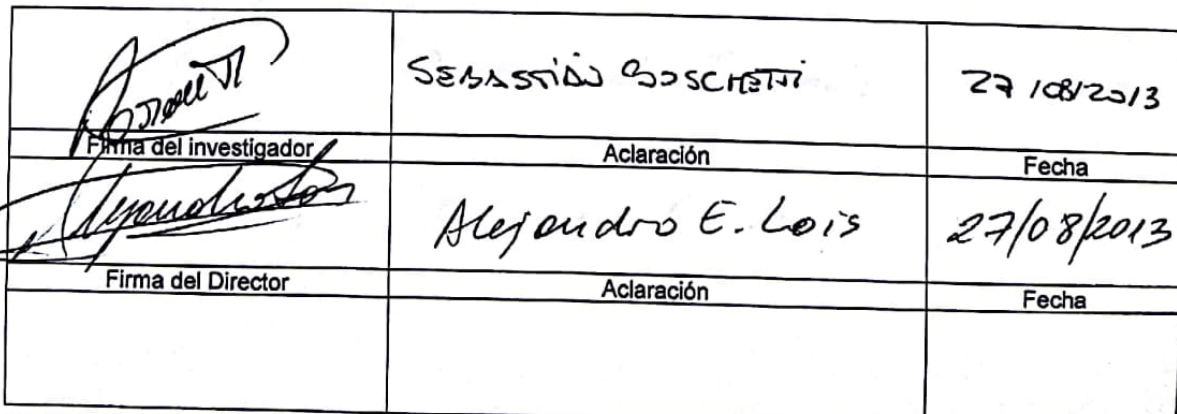 SEBASTIÁN BOSCHETTI
27/08/2013
Firma del investigador
Aclaración
Fecha
Alejandro E. Lois
27/08/2013
Firma del Director
Aclaración
Fecha